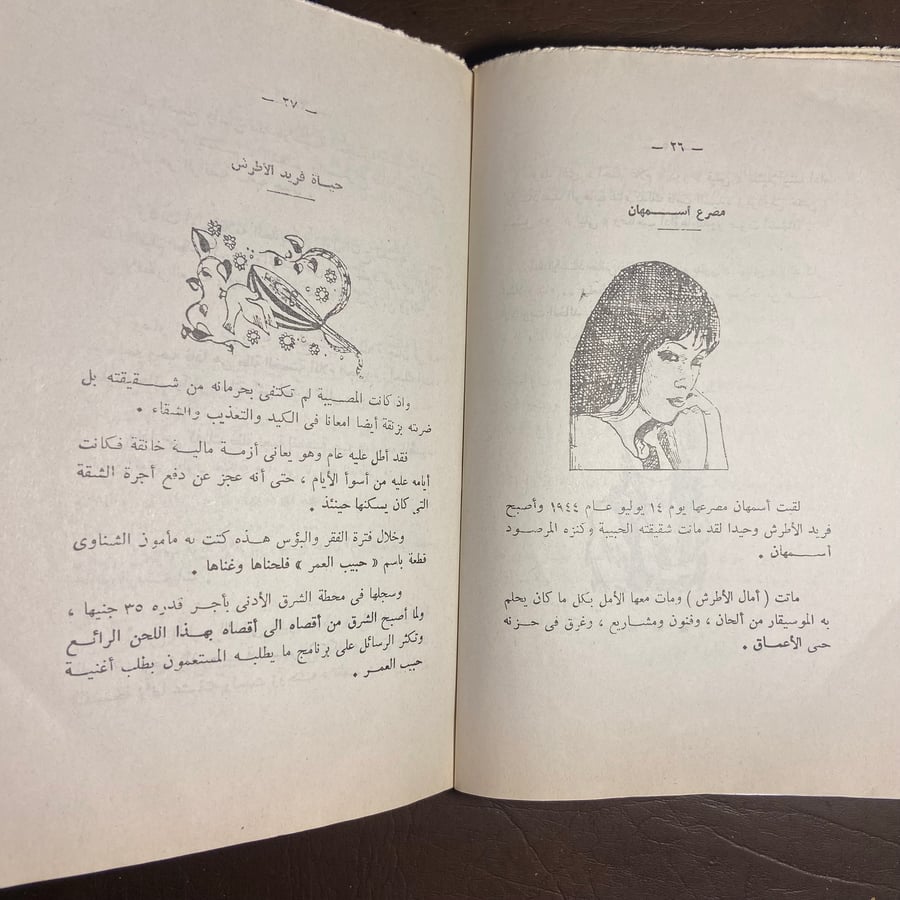 — ٢٦ —
مصرع أسمهان
لقيت أسمهان مصرعها يوم ١٤ يوليو عام ١٩٤٤ وأصبح
فريد الأطرش وحيدا لقد ماتت شقيقته الحبيبة وكنزه المرصود
أسمهان .
ماتت ( أمال الأطرش ) ومات معها الأمل بكل ما كان يحلم
به الموسيقار من ألحان ، وفنون ومشاريع ، وغرق فى حزنه
حتى الأعماق .
— ٢٧ —
حياة فريد الأطرش
واذ كانت المصيبة لم تكتفى بحرمانه من شقيقته بل
ضرته بزنقة أيضا امعانا فى الكيد والتعذيب والشقاء .
فقد أطل عليه عام وهو يعانى أزمة مالية خانقة فكانت
أيامه عليه من أسوأ الأيام ، حتى أنه عجز عن دفع أجرة الشقة
التى كان يسكنها حينئذ .
وخلال فترة الفقر والبؤس هذه كتب له مأمون الشناوى
قطعة باسم « حبيب العمر » فلحناها وغناها .
وسجلها فى محطة الشرق الأدنى بأجر قدره ٣٥ جنيها ،
ولما أصبح الشرق من أقصاه الى أقصاه بهذا اللحن الرائع
وتكثر الرسائل على برنامج ما يطلبه المستمعون بطلب أغنية
حبيب العمر .